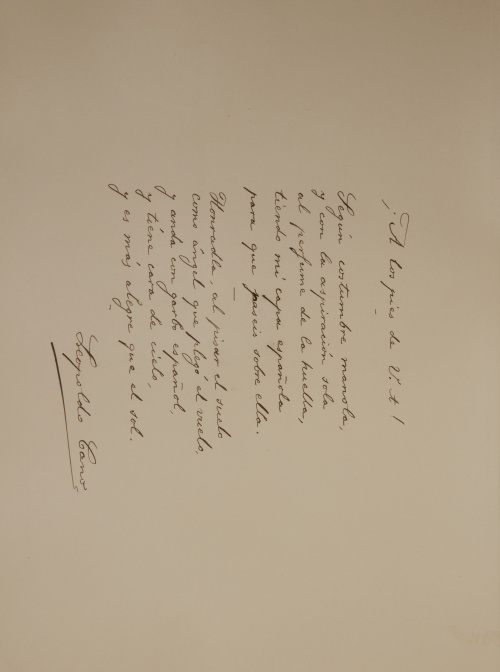 ¡A los pies de V. A.!
Según costumbre manola,
y con la aspiración sola
al perfume de la huella,
tiendo mi capa española
para que paseis sobre ella.
Honradla, al pisar el suelo
como ángel que plegó el vuelo,
y anda con garbo español,
y tiene cara de cielo,
y es más alegre que el sol.
Leopoldo Cano